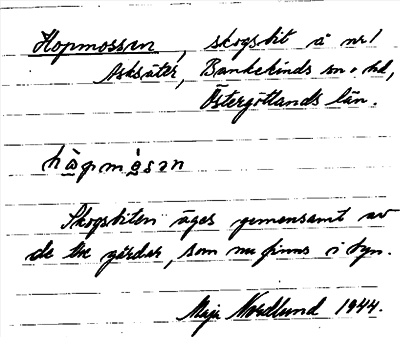 Hopmossen, skogsbit å nr 1
Asksäter, Bankekinds sn o. hd,
Östergötlands län.
hàpmósən
Skogsbiten äges gemensamt av
de tre gårdar, som nu finns i byn.
Maja Nordlund 1944.